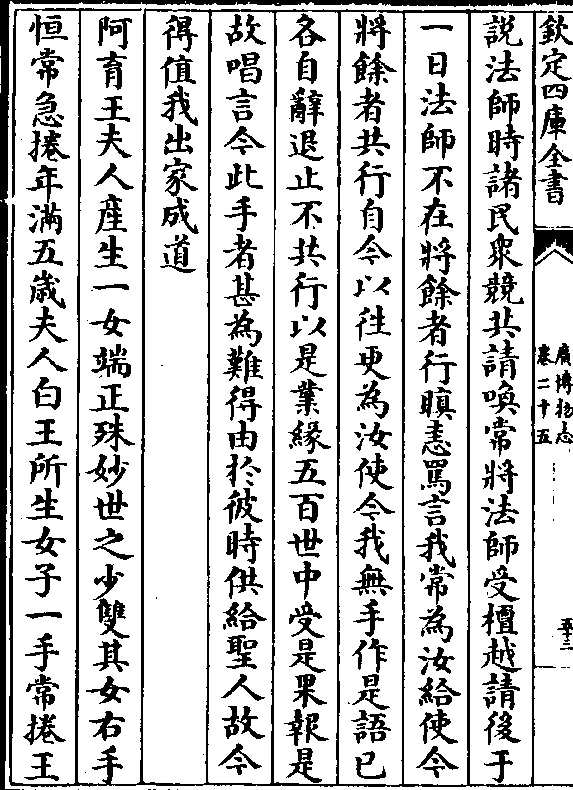 欽定四庫全書
廣博物志
卷二十五
五十三
説法師時諸民衆競共請喚常將法師受檀越請後于
一日法師不在將餘者行瞋恚罵言我常為汝給使今
將餘者共行自今以往更為汝使令我無手作是語已
各自辭退止不共行以是業緣五百世中受是果報是
故唱言今此手者甚為難得由於彼時供給聖人故今
得值我出家成道
阿育王夫人産生一女端正殊妙世之少雙其女右手
恒常急捲年滿五歲夫人白王所生女子一手常捲王